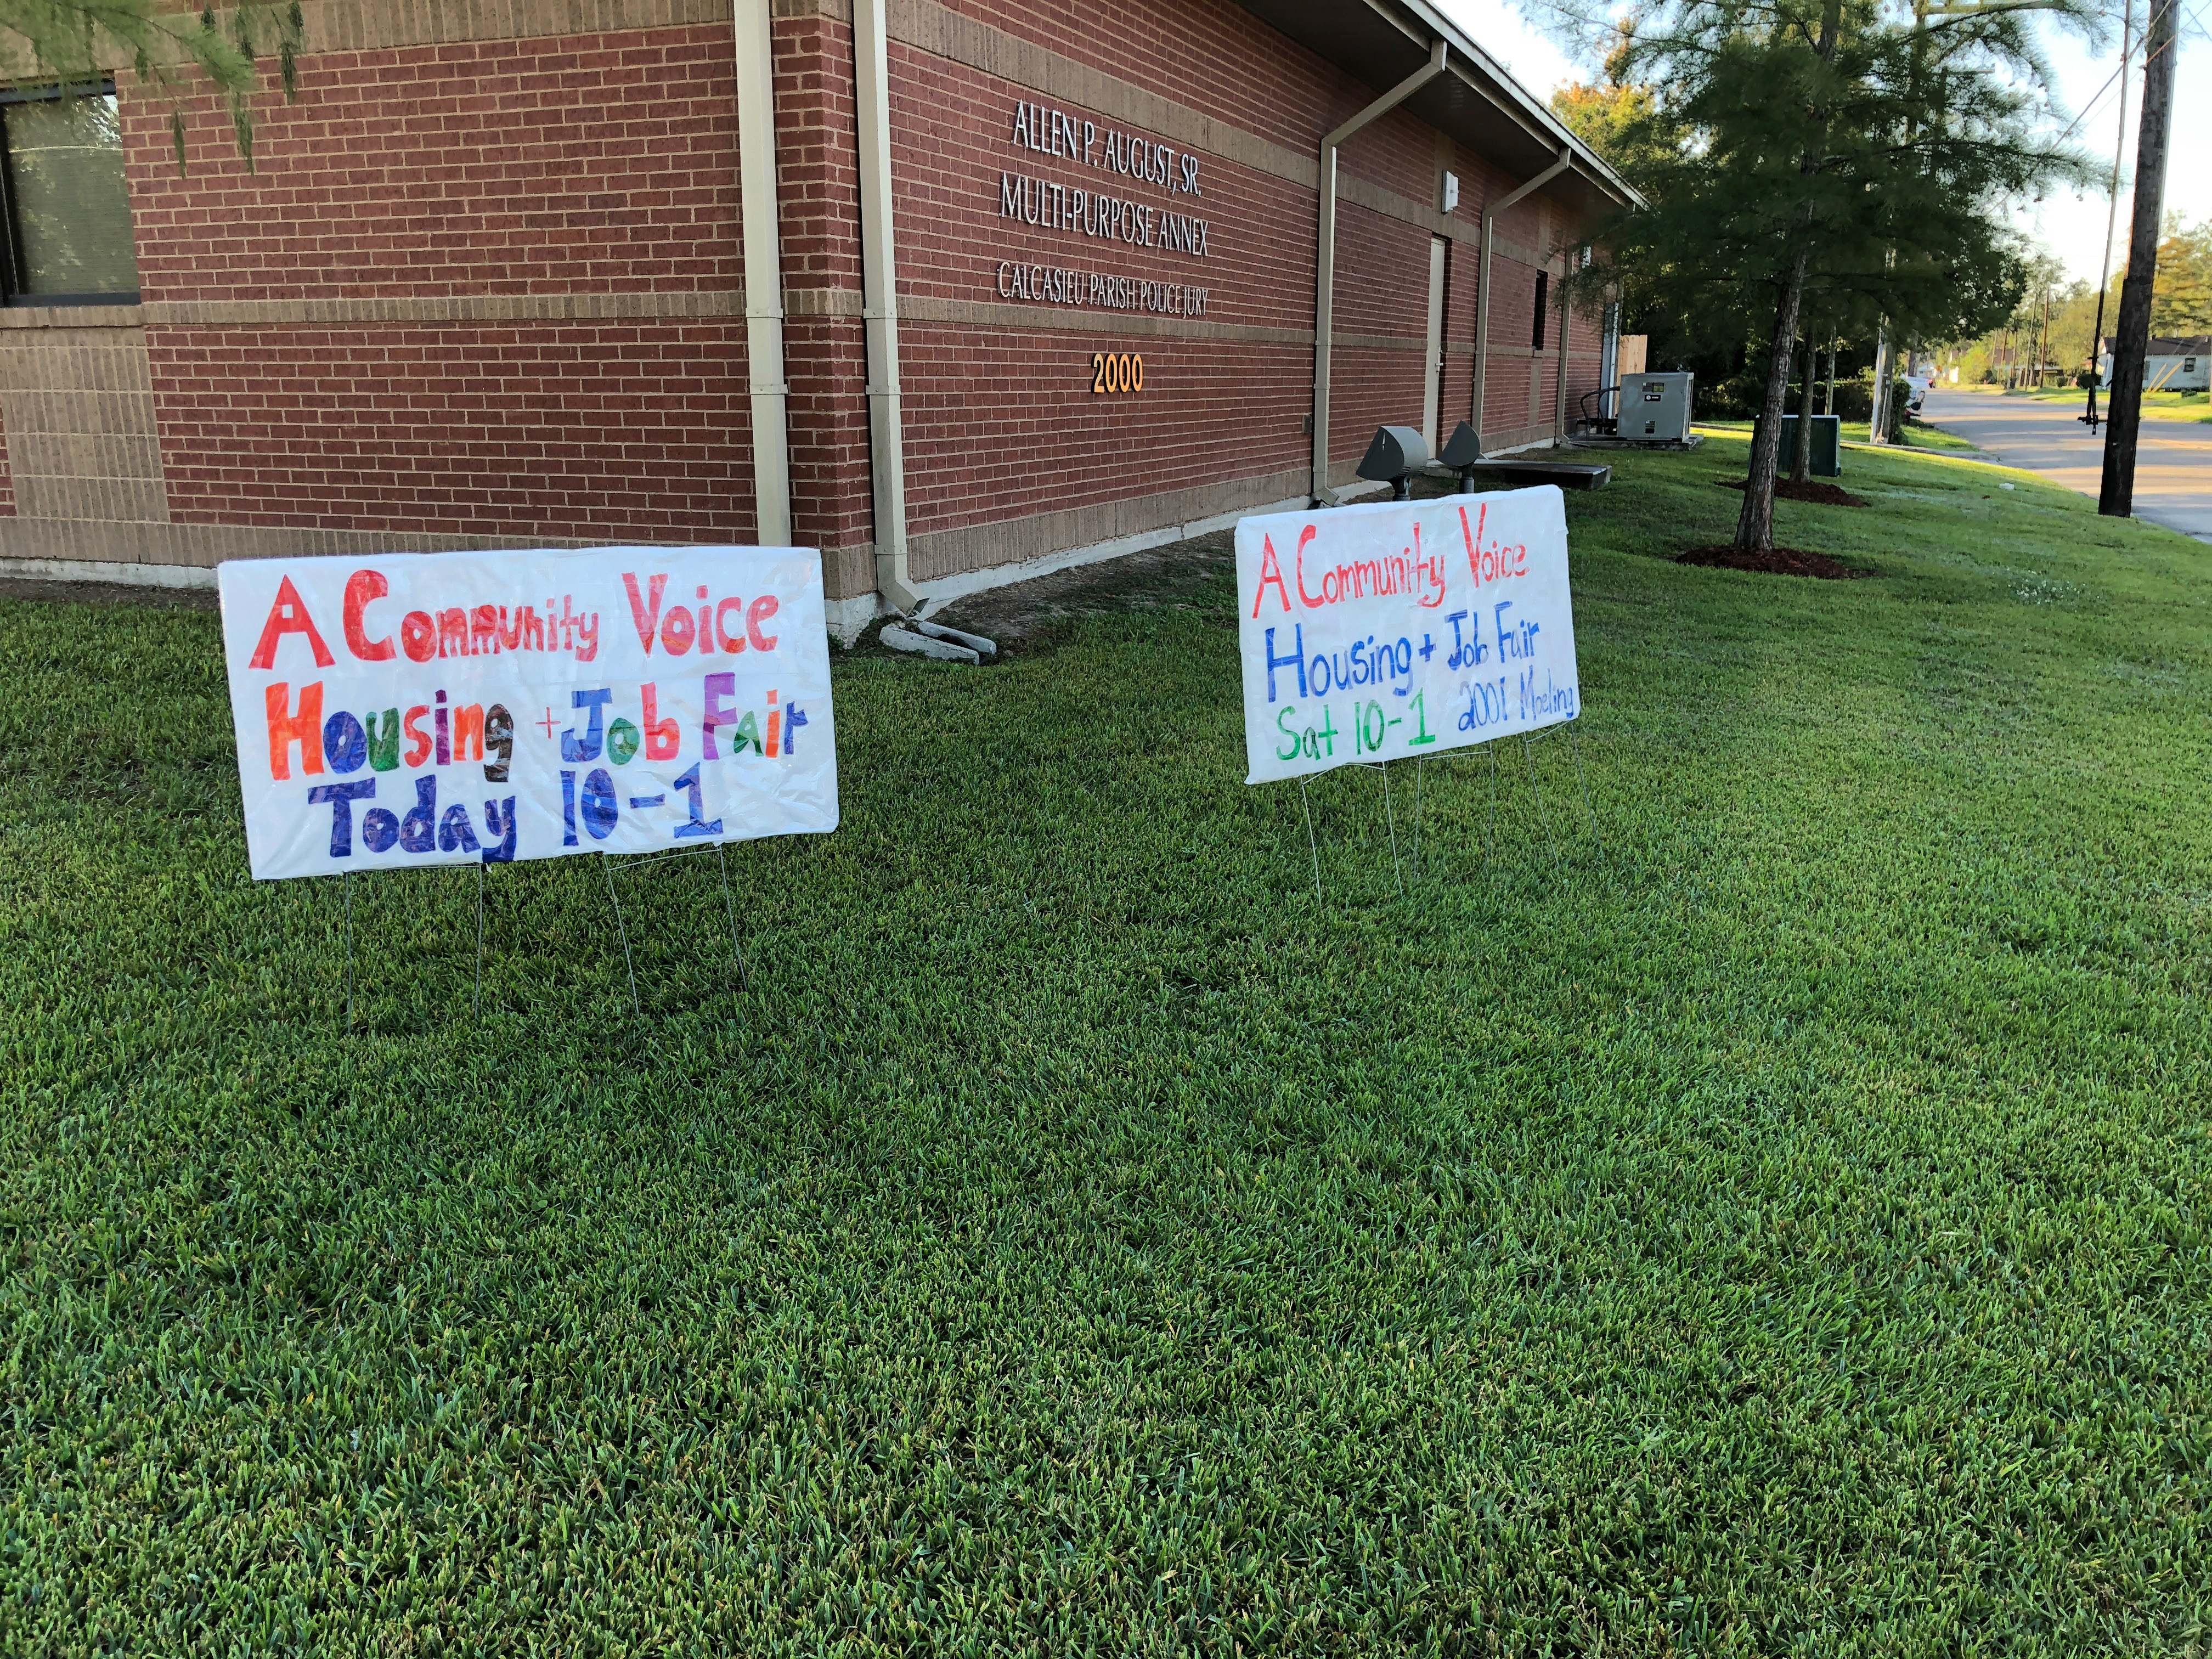 ALLEN P. AUGUST, SR.
MULTI-PURPOSE ANNEX
CALCASIEU PARISH POLICE JURY
2000
A Community Voice
Housing + Job Fair
Today 10-1
A Community Voice
Housing + Job Fair
Sat 10-1 2001 Moeling